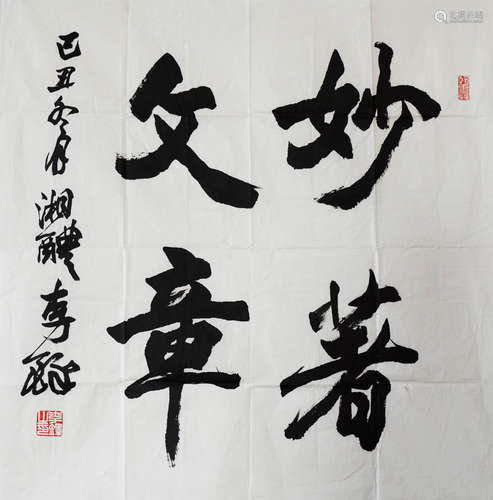 妙著
文章
己丑冬月湘醴李